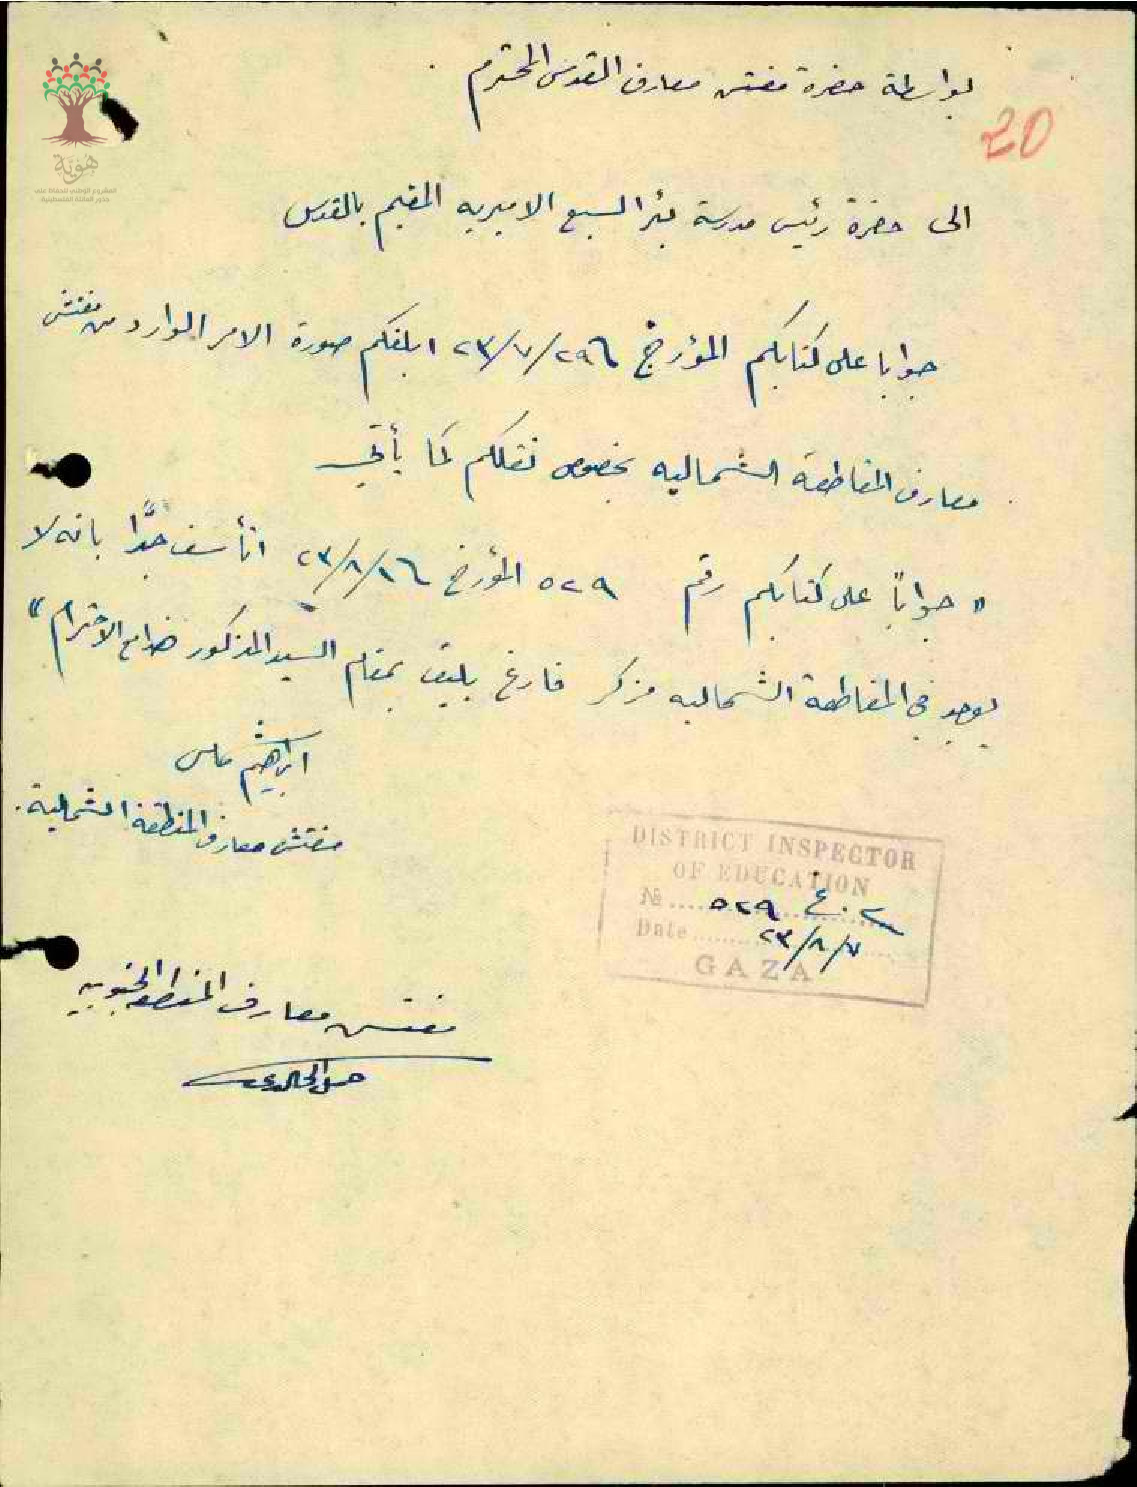 بواسطة حضرة مفتش معارف القدس المحترم
20
الى حضرة رئيس مدرسة بئر السبع الاميريه المقيم بالقدس
جوابا على كتابكم المؤرخ ٢٣/٧/٢٩ ابلغكم صورة الامر الوارد من مفتش
معارف المقاطعة الشماليه بخصوص نقلكم كما يأتي
" جواباً على كتابكم رقم ٥٢٩ المؤرخ ٢٣/٨/١٦ اتأسف جدًّا بانه لا
يوجد في المقاطعة الشماليه مركز فارغ يليق بمقام السيد المذكور هذا مع الاحترام "
ابراهيم
مفتش معارف المنطقة الشمالية.
DISTRICT INSPECTOR
OF EDUCATION
№ ٥٢٩
Date ٢٣/٨/٧
GAZA
مفتش معارف المنطقة الجنوبيه
هوية
المشروع الوطني للحفاظ على
جذور العائلة الفلسطينية